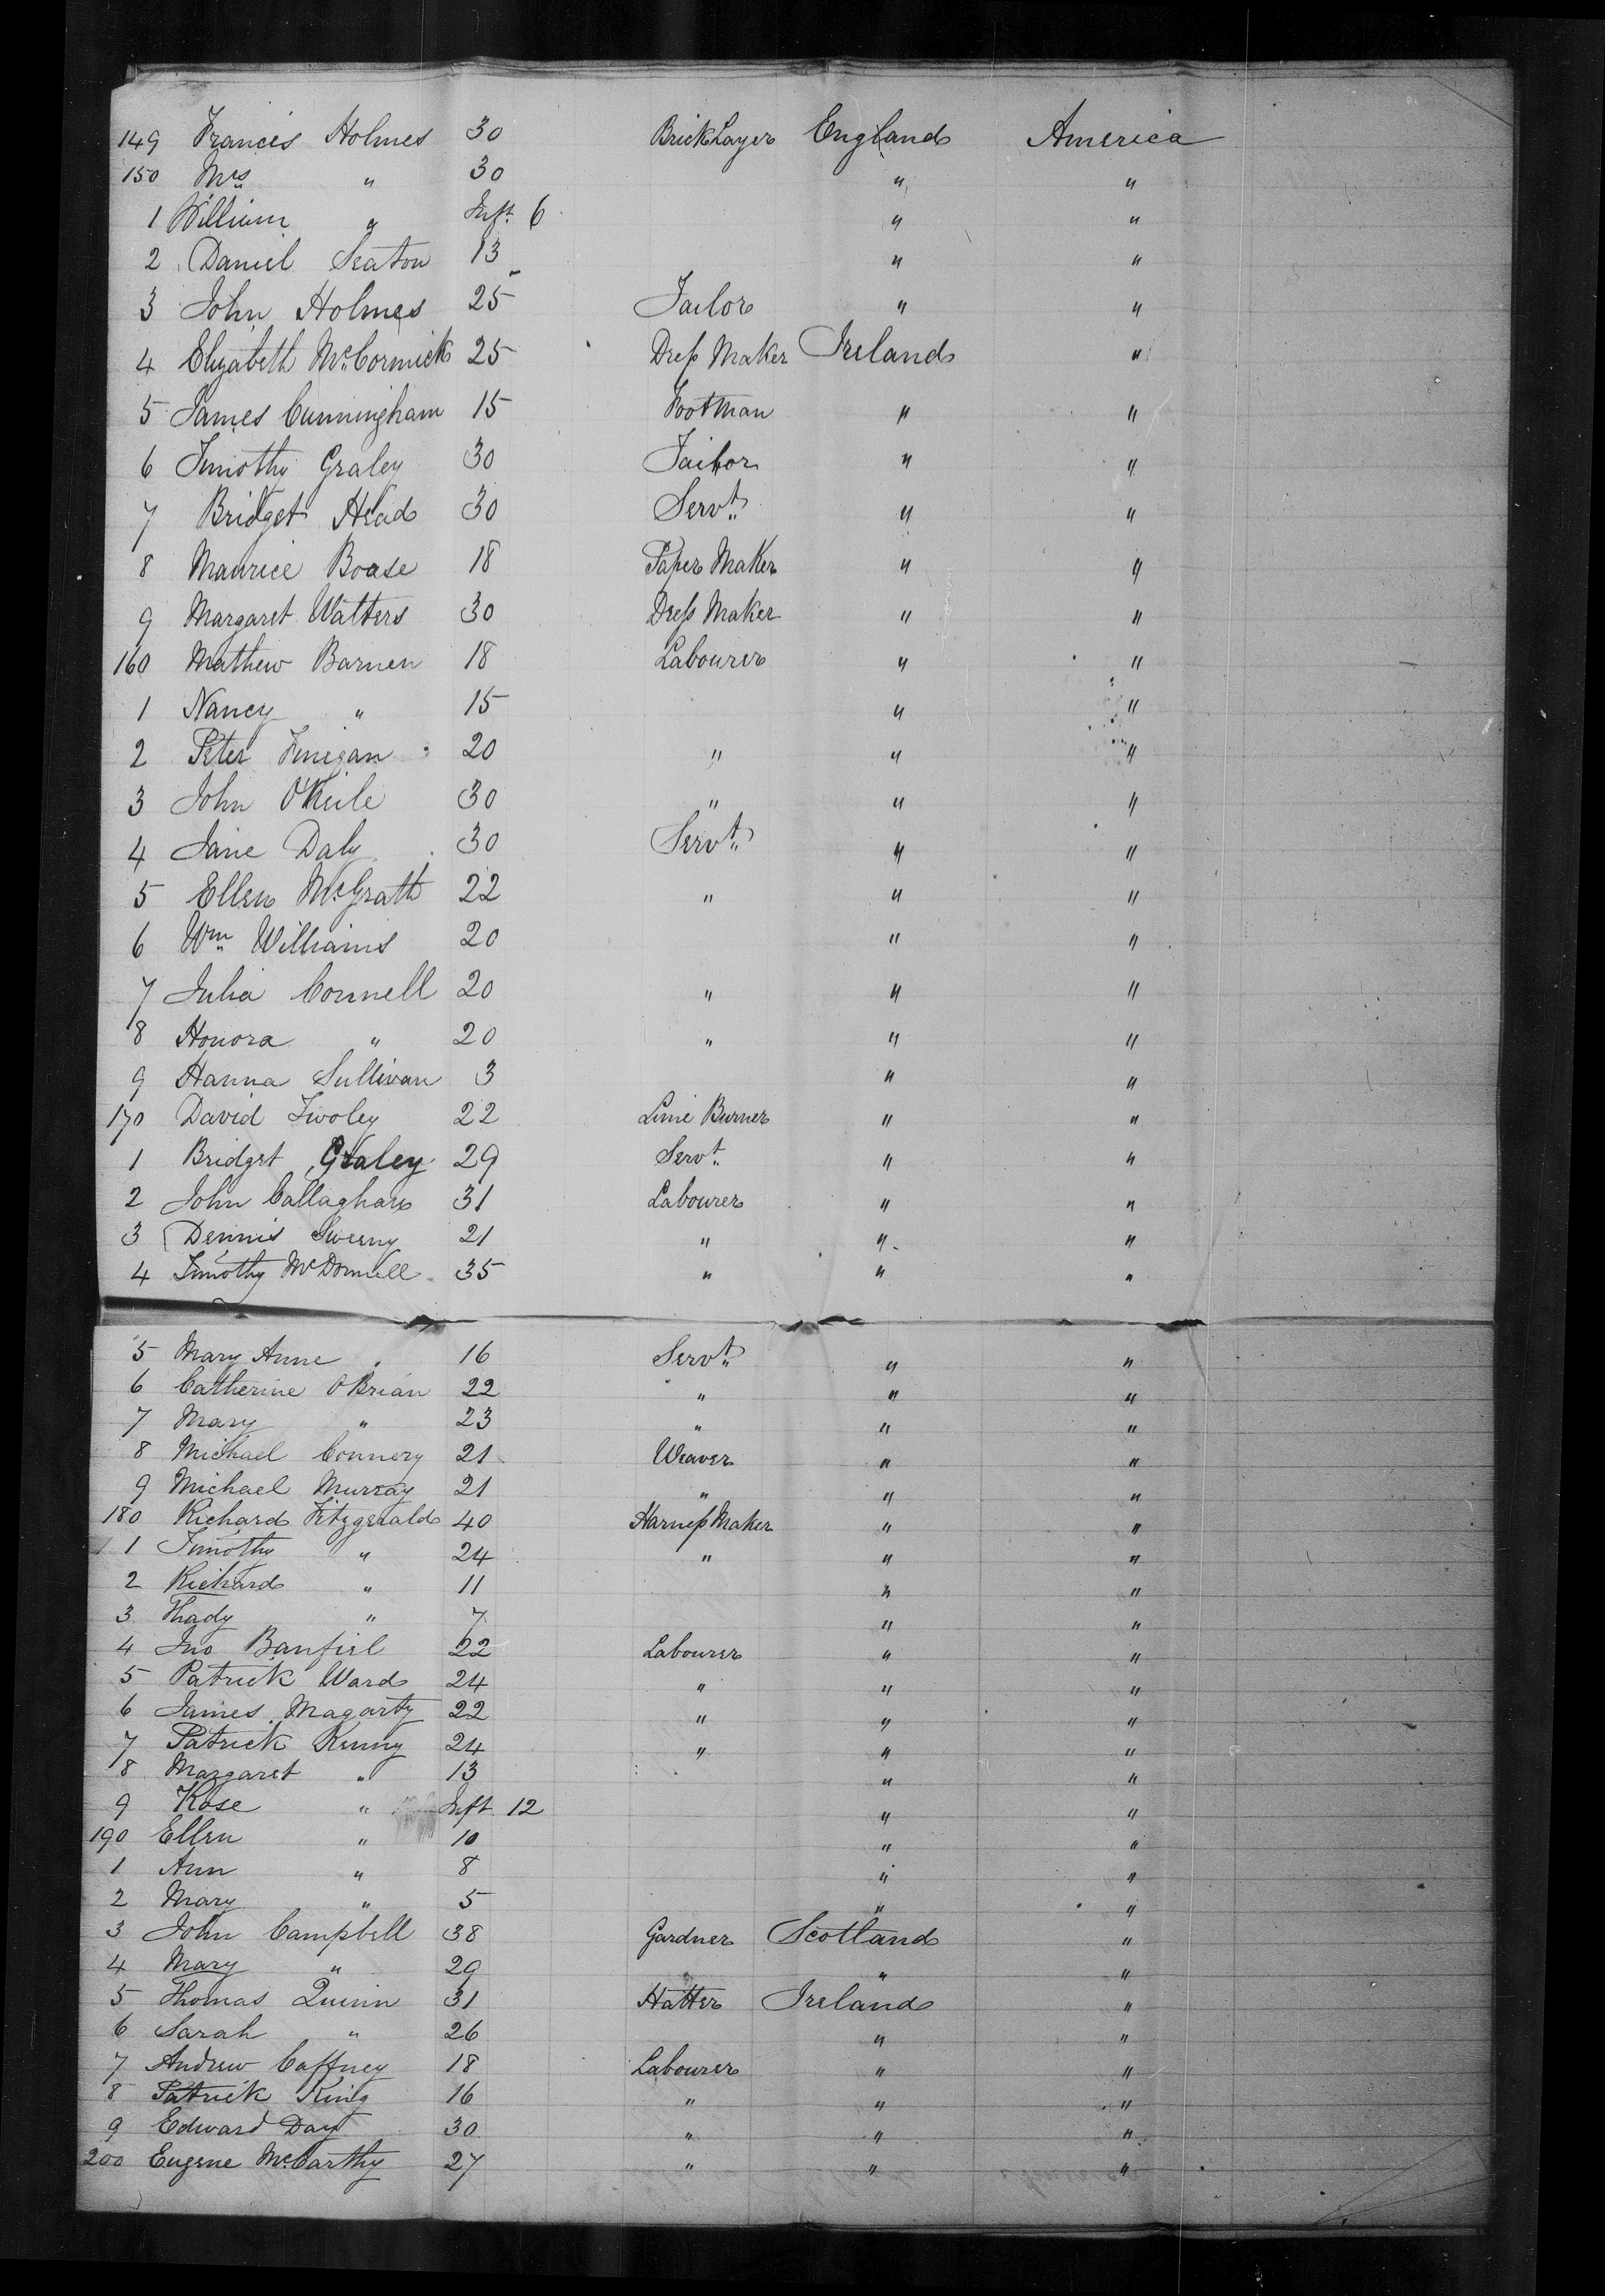 149 Francis Holmes 30 BrickLayer England America
150 Mrs " 30 " "
1 William " Inft. 6 " "
2 Daniel Seaton 13 " "
3 John Holmes 25 Tailor " "
4 Elizabeth McCormick 25 Dress Maker Ireland "
5 James Cunningham 15 Footman " "
6 Timothy Graley 30 Tailor " "
7 Bridget Head 30 Servt. " "
8 Maurice Boase 18 Paper Maker " "
9 Margaret Watters 30 Dress Maker " "
160 Mathew Barnen 18 Labourer " "
1 Nancy " 15 " "
2 Peter Finigan 20 " " "
3 John O'Keile 30 " " "
4 Jane Daly 30 Servt. " "
5 Ellen McGrath 22 " " "
6 Wm Williams 20 " "
7 Julia Connell 20 " " "
8 Honora " 20 " " "
9 Hanna Sullivan 3 " "
170 David Twoley 22 Lime Burner " "
1 Bridget Graley 29 Servt. " "
2 John Callaghan 31 Labourer " "
3 Dennis Sweeny 21 " " "
4 Timothy McDonnell 35 " " "
5 Mary Anne " 16 Servt. " "
6 Catherine OBrian 22 " " "
7 Mary " 23 " " "
8 Michael Connery 21 Weaver " "
9 Michael Murray 21 " " "
180 Richard Fitzgerald 40 Harness Maker " "
1 Timothy " 24 " " "
2 Richard " 11 " "
3 Thady " 7 " "
4 Jno Banfiel 22 Labourer " "
5 Patrick Ward 24 " " "
6 James Magarty 22 " " "
7 Patrick Kenny 24 " " "
8 Margaret " 13 " "
9 Rose " Inft 12 " "
190 Ellen " 10 " "
1 Ann " 8 " "
2 Mary " 5 " "
3 John Campbell 38 Gardner Scotland "
4 Mary " 29 " "
5 Thomas Quinn 31 Hatter Ireland "
6 Sarah " 26 " "
7 Andrew Caffney 18 Labourer " "
8 Patrick King 16 " " "
9 Edward Day 30 " " "
200 Eugene McCarthy 27 " " "